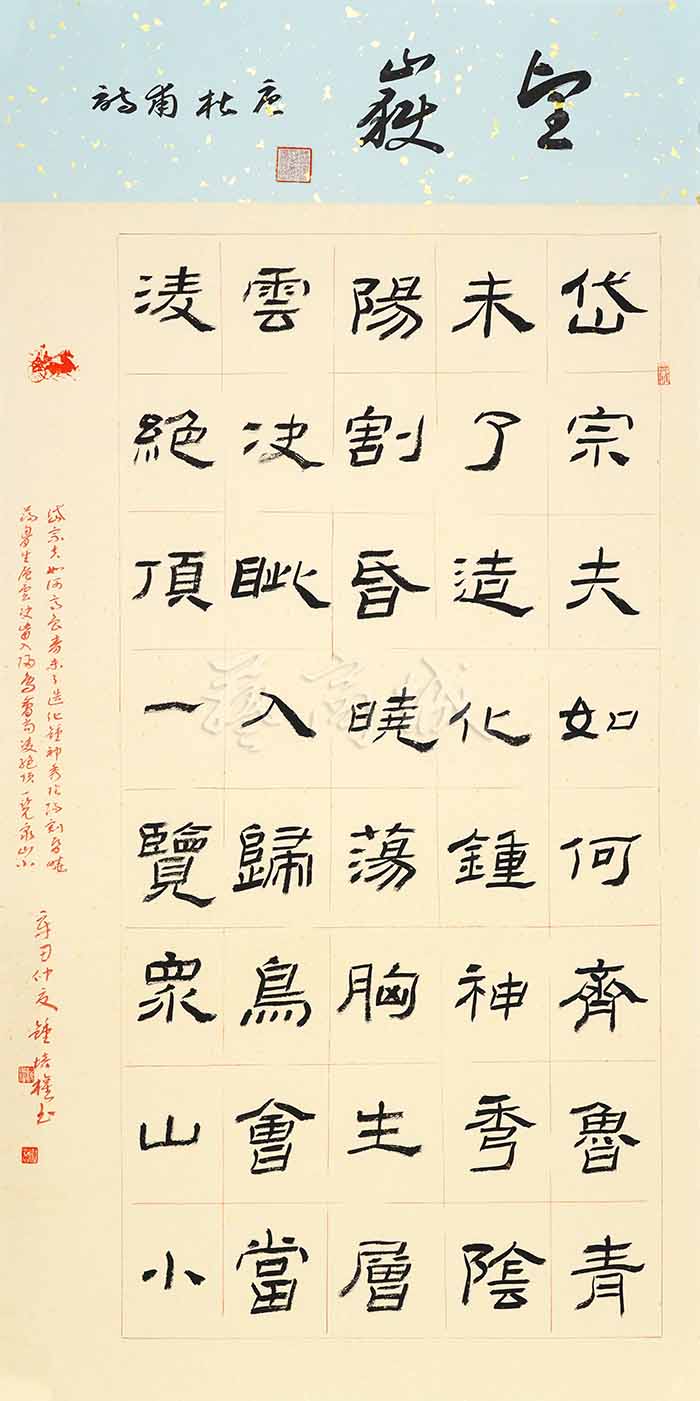 望嶽
唐杜甫詩
岱宗夫如何齊魯青
未了造化鍾神秀陰
陽割昏曉蕩胸生層
雲决眦入歸鳥會當
淩絶頂一覽眾山小
岱宗夫如何齊魯青未了造化鍾神秀陰陽割昏曉
蕩胸生層雲决眥入歸鳥會當淩絶頂一覽眾山小
辛丑仲夏鍾培權書